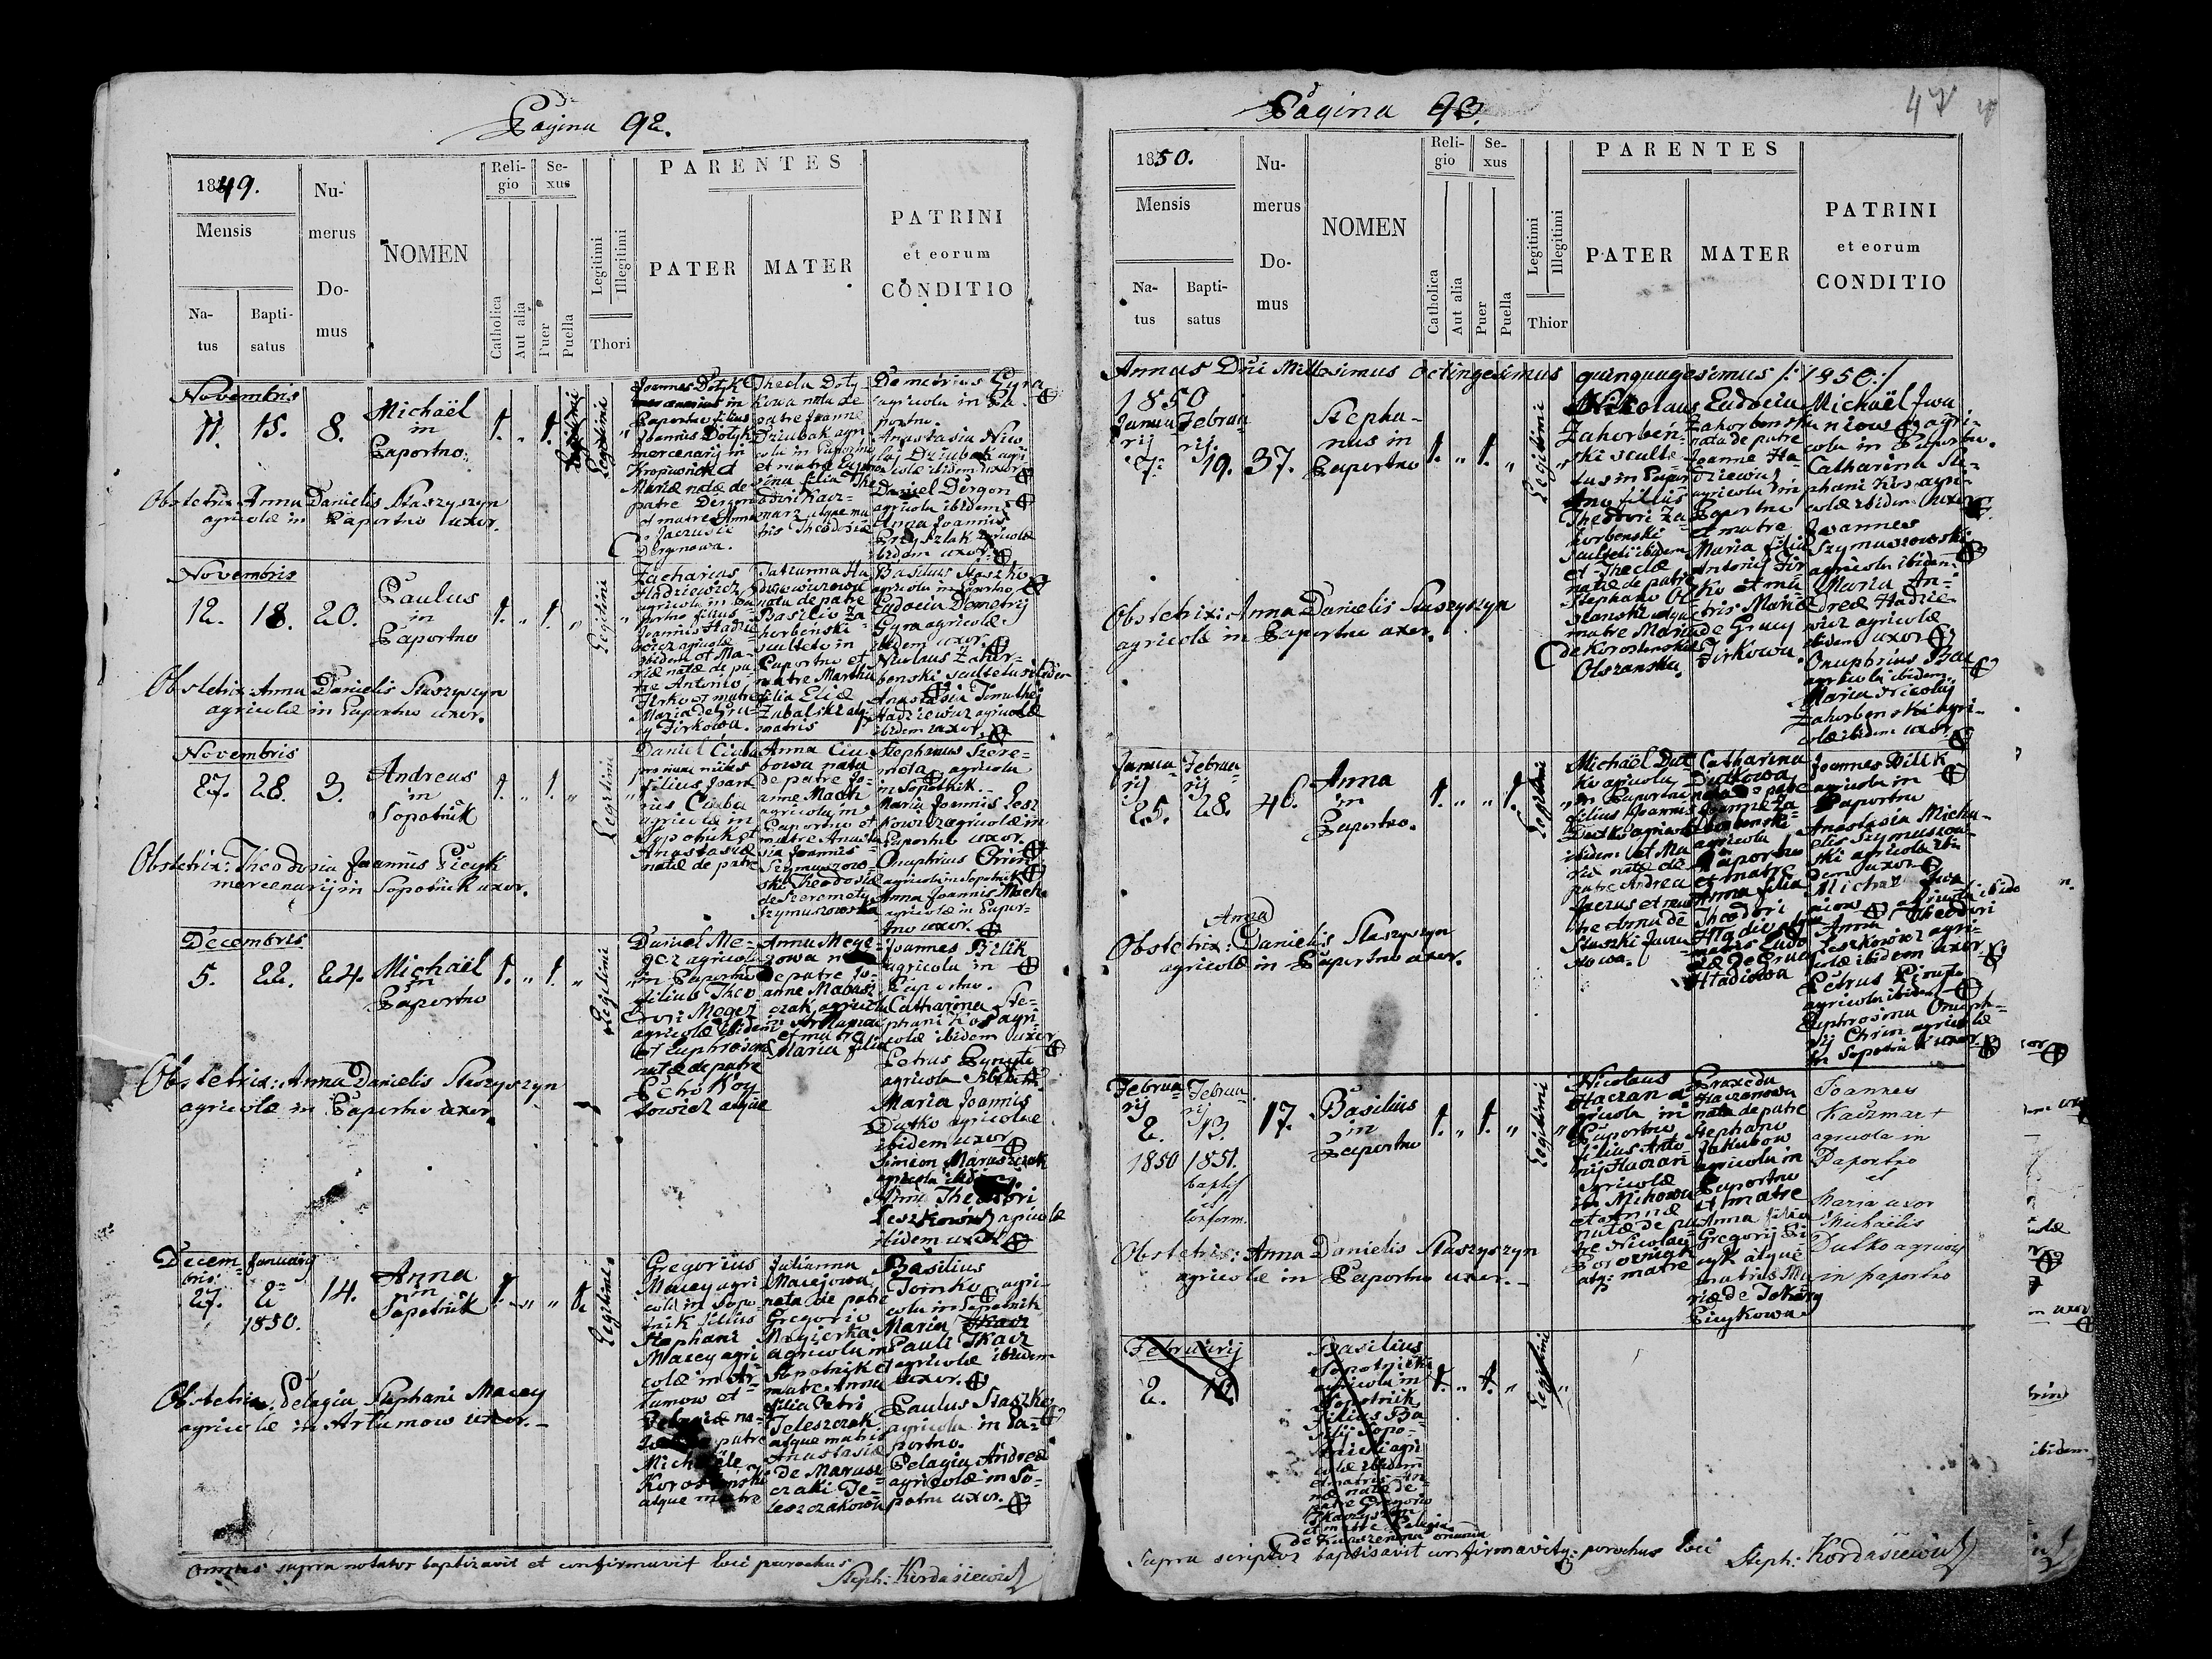 Pagina 92.
1849.
Mensis
Na-
tus
Bapti-
satus
Nu-
merus
Do-
mus
NOMEN
Reli-
gio
Catholica
Aut alia
Se-
xus
Puer
Puella
Legitimi
Illegitimi
Thori
PARENTES
PATER
MATER
PATRINI
et eorum
CONDITIO
Novembris
11. 15. 8.
Michaël
in
Paportno.
1. „ 1.
Legitimi
Joannes Dotyk
mercenarius in
Paportno filius
Joannis Dotyk
mercenarij in
Kropiwnik et
Mariæ natæ de
patre Dergon
et matre Anna
Dergonowa.
Thecla Doty-
kowa nata de
patre Joanne
Dziubak agri-
cola in Paportno
Demetrius Gyra
agricola in Pa-
portno.
Anastasia Nico-
laj Dziubak agri-
colæ ibidem uxor
Daniel Dergon
agricola ibidem
Anna Joannis
Przyszlak agricolæ
ibidem uxor.
Obstetrix: Anna Danielis Staszyszyn
agricolæ in Paportno uxor.
Novembris
12. 18. 20.
Paulus
in
Paportno
1. „ 1. „
Legitimi
Zacharias
Hadziewicz
agricola in Pa-
portno filius
Joannis Hadzie-
wicz agricolæ
ibidem et Ma-
riæ natæ de pa-
tre Antonio
Firko et matre
Maria de Gru-
cy Firkowa.
Tatianna Ha-
dziewiczowa
nata de patre
Basilio Za-
horbenski
sculteto in
Paportno et
matre Martha
filia Eliæ
Zubalski atq:
matris
Basilius Staszko
agricola in Paportno
Eudocia Demetrij
Gyra agricolæ
ibidem uxor.
Nicolaus Zahor-
benski scultetus ibidem
Anastasia Timothej
Hadziewicz agricolæ
ibidem uxor.
Obstetrix: Anna Danielis Staszyszyn
agricolæ in Paportno uxor.
Novembris
27. 28. 3.
Andreas
in
Sopotnik
1. „ 1. „
Legitimi
Daniel Ciuba
filius Joan-
nis Ciuba
agricolæ in
Sopotnik et
Anastasiæ
natæ de patre
Anna Ciu-
bowa nata
de patre Jo-
anne Mach
agricola in
Paportno et
matre Anasta-
sia Joannis
Szymuszow-
ski Theodosiæ
de Szeremety
Szymuszowska
Stephanus Szere-
meta agricola
in Sopotnik.
Maria Joannis Lesz-
kowicz agricolæ in
Paportno uxor.
Onuphrius Chrin
agricola in Sopotnik
Anna Joannis Mach
agricolæ in Papor-
tno uxor.
Obstetrix: Theodosia Joannis Picyk
mercenarij in Sopotnik uxor.
Decembris
5. 22. 24.
Michaël
in
Paportno
1. „ 1. „
Legitimi
Daniel Me-
gez agricola
in Paportno
filius Theo-
dori Megez
agricolæ ibidem
et Euphrosinæ
natæ de patre
atque
Anna Mege-
zowa
de patre Jo-
anne Marusz-
czak agricola
et matre
Maria filia
Joannes Bilik
agricola in
Paportno.
Catharina Ste-
phani Kos agri-
colæ ibidem uxor
Petrus Pynylo
agricola ibidem
Maria Joannis
Dutko agricolæ
ibidem uxor
Simeon Maruszczak
agricola ibidem
Anna Theodori
Leszkowicz agricolæ
ibidem uxor
Obstetrix: Anna Danielis Staszyszyn
agricolæ in Paportno uxor
Decem-
bris
Januarij
27. 2 14.
1850.
Anna
in
Sopotnik
1. „ „ 1.
Legitimi
Gregorius
Macey agri-
cola in Sopo-
tnik filius
Stephani
Macey agri-
colæ in Ar-
tumow et
Pelagiæ na-
patre
Michaële
atque matre
Julianna
Macejowa
nata de patre
Gregorio
Magierka
agricola in
Sopotnik et
matre Anna
filia Petri
Teleszczak
atque matris
Anastasiæ
de Marusz-
czaki Te-
leszczakowa
Basilius
Tomko agri-
cola in Sopotnik
Maria
Pauli Tkacz
agricolæ ibidem
uxor.
Paulus Staszko
agricola in Pa-
portno.
Pelagia Andreæ
agricolæ in So-
potnik uxor.
Obstetrix: Pelagia Stephani Macey
agricolæ in Artumow uxor.
Omnes supra notatos baptizavit et confirmavit loci parochus
Steph: Kordasiewicz
Pagina 93.
47
1850.
Mensis
Na-
tus
Bapti-
satus
Nu-
merus
Do-
mus
NOMEN
Reli-
gio
Catholica
Aut alia
Se-
xus
Puer
Puella
Legitimi
Illegitimi
Thior
PARENTES
PATER
MATER
PATRINI
et eorum
CONDITIO
Annus Dni Millesimus octingesimus quinquagesimus /: 1850:/
1850
Janua-
rij
Februa-
rij
7. 19. 37.
Stepha-
nus in
Paportno
1. „ 1. „
Legitimi
Nikolaus
Zahorben-
ski sculte-
tus in Papor-
tno filius
Theodori Za-
horbenski
sculteti ibidem
et Theclæ
natæ de patre
Stephano Ol-
szanski atque
matre Maria
Olszanska
Eudocia
Zahorbenska
nata de patre
Joanne Ha-
dziewicz
agricola in
Paportno
et matre
Maria filia
Antonij Fir-
ko et ma-
tris Mariæ
de Grucy
Firkowa.
Michaël Iwa-
niow agri-
cola in Paportno.
Catharina Ste-
phani Kos agri-
colæ ibidem uxor
Joannes
Szymuszowski
agricola ibidem.
Maria An-
dreæ Hadzie-
wicz agricolæ
ibidem uxor
Onuphrius Bac
agricola ibidem.
Maria Nicolaj
Zahorbenski agri-
colæ ibidem uxor
Obstetrix: Anna Danielis Staszyszyn
agricolæ in Paportno uxor.
Janua-
rij
Februa-
rij
25. 28. 46.
Anna
in
Paportno.
1. „ „ 1.
Legitimi
Michaël Dut-
ko agricola
in Paportno
filius Joannis
Dutko agricolæ
ibidem et Ma-
riæ natæ de
patre Andrea
Jacus et ma-
tre Anna de
Catharina
Dutkowa
nata de patre
Joanne Za-
horbenski
agricola
Paportno
et matre
Anna filia
Theodori
Hladio atq:
matris Eudo-
ciæ de Grucy
Hladiowa
Joannes Bilik
agricola in
Paportno
Anastasia Micha-
elis Szymuszow-
ski agricolæ ibi-
dem uxor
Michaël Iwa-
niow agricola ibidem
Anna Theodori
Leszkowicz agri-
colæ ibidem uxor
Petrus Pynylo
agricola ibidem
Euphrosina Onuph-
rij Chrin agricolæ
in Sopotnik uxor
Anna
Obstetrix: Danielis Staszyszyn
agricolæ in Paportno uxor.
Februa-
rij
Februa-
rij
2. 13. 17.
1850 1851.
baptis
et
confirm.
Basilius
in
Paportno
1. „ 1. „
Legitimi
Nicolaus
Haczan a-
gricola in
Paportno
filius Anto-
nij Haczan
agricolæ
in Michowa
et Annæ
natæ de pa-
tre Nicolao
atq: matre
Praxeda
Haczanowa
nata de patre
Stephano
Jakubow
agricola in
Paportno
et matre
Anna filia
Gregorij Pi-
cyk atque
matris Ma-
riæ de Tokary
Picykowa
Joannes
Kaczmar
agricola in
Paportno
et
Maria uxor
Michaëlis
Dutko agricolæ
in paportno
Obstetrix: Anna Danielis Staszyszyn
agricolæ in Paportno uxor.
Februarij
2.
Basilius
Sopotnicki
agricola in
Sopotnik
filius Ba-
silij Sopo-
tnicki agri-
colæ ibidem
et matris An-
næ natæ de
patre Gregorio
et matre Pelagia
1. „ 1. „
Legitimi
Supra scriptos baptisavit confirmavitq: parochus loci
Steph: Kordasiewicz